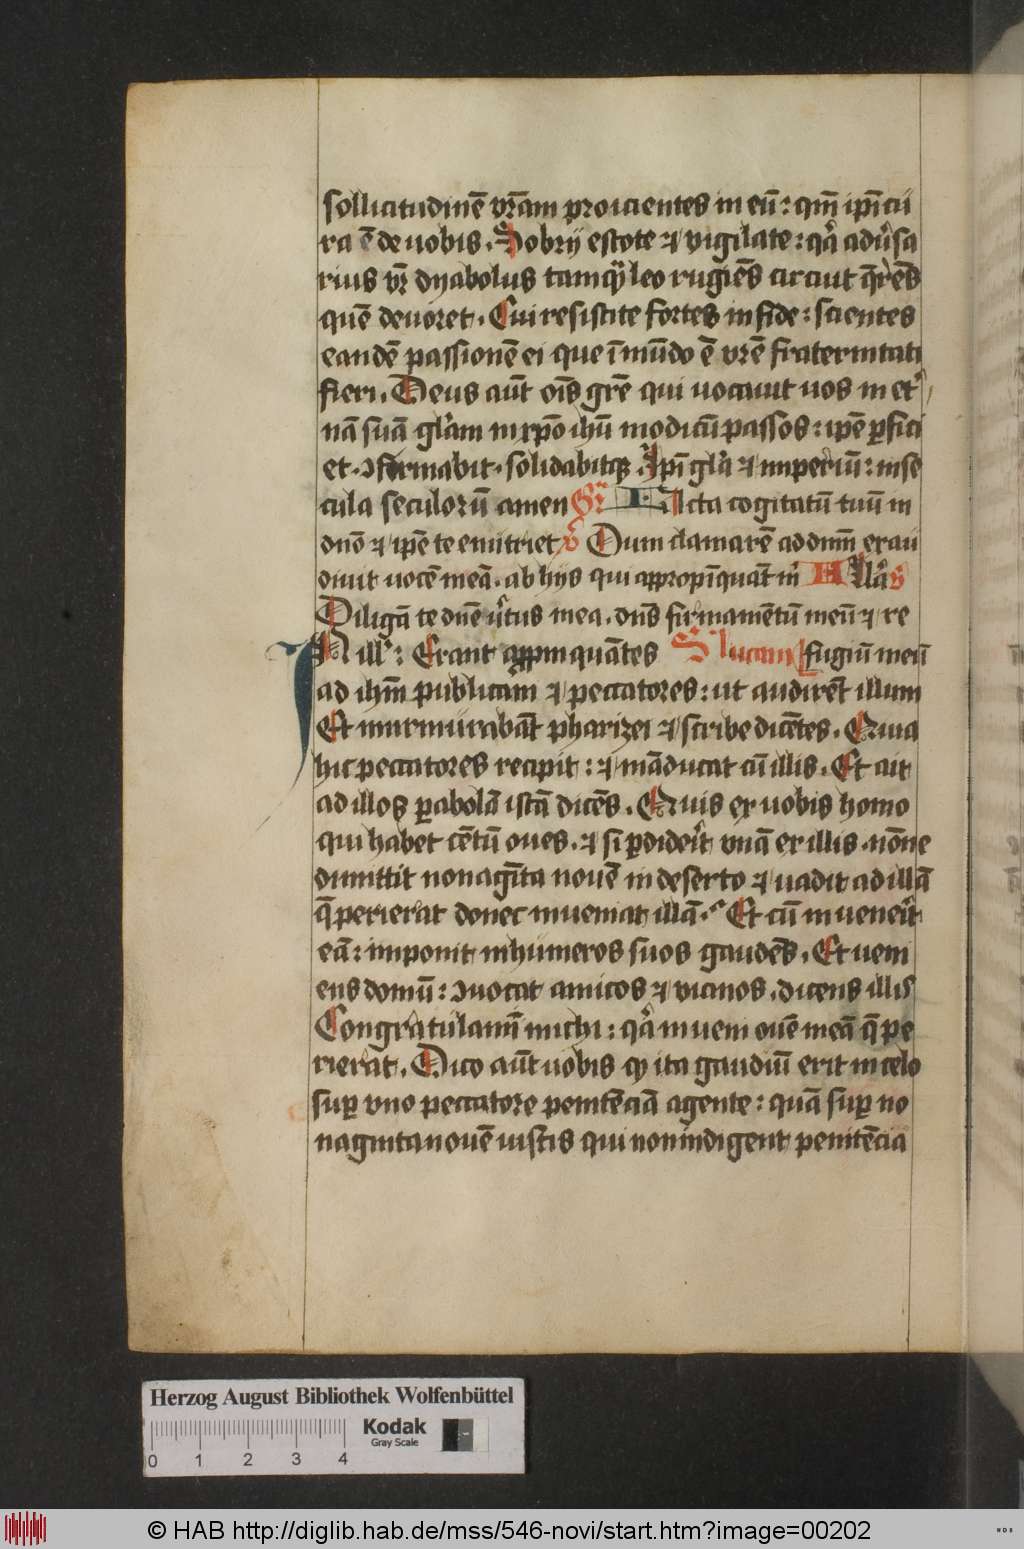 sollicitudinē vr̄am proicientes in eū: qm̄ ipi cu
ra ē de uobis. Sobrij estote ⁊ vigilate: qa aduˀsa
rius vr̄ dyabolus tamqꝫ leo rugiēs circuit qrēs
quē deuoret. Cui resistite fortes in fide: scientes
eandē passionē ei que ī mūdo ē vr̄e fraternitati
fieri. Deus aūt oīs gr̄e qui uocauit uos in etˀ
nā suā glˀam in xp̄o ihū modicū passos: ipē ꝑfici
et. ꝯfirmabit. solidabitqꝫ. Ipī glˀa ⁊ imperiū: in se
cula seculorū amen Gr̄ Iacta cogitatū tuū in
dn̄o ⁊ ipē te enutriet v̄ Dum clamarē ad dnm̄ exau
diuit uocē meā. ab hijs qui appropīquāt mˀ Allˀa
Diligā te dn̄e vˀtus mea. dn̄s firmamētū meū ⁊ re
In illˀ: Erant appinquātes S lucam fugiū meū
ad ihm̄ publicani ⁊ peccatores: ut audirēt illum
Et murmurabāt pharizei ⁊ scribe dicētes. Quia
hic peccatores recipit: ⁊ māducat cū illis. Et ait
ad illos ꝑabolā istā dicēs. Quis ex uobis homo
qui habet cētū oues. ⁊ si ꝑdiderˀit vnā ex illis. nōne
dimittit nonagīta nouē in deserto ⁊ uadit ad illā
q̄ perierat donec inueniat illā. Et cū inuenerˀit
eā: imponit in humeros suos gaudēs. Et ueni
ens domū: ꝯuocat amicos ⁊ vicinos. dicens illis
Congratulamī michi: qa inueni ouē meā q̄ pe
rierāt. Dico aūt uobis qꝫ ita gaudiū erit in celo
suꝑ vno peccatore penitēciā agente: quā suꝑ no
naginta nouē iustis qui non indigent penitēcia
Herzog August Bibliothek Wolfenbüttel
Kodak
Gray Scale
0 1 2 3 4
© HAB http://diglib.hab.de/mss/546-novi/start.htm?image=00202